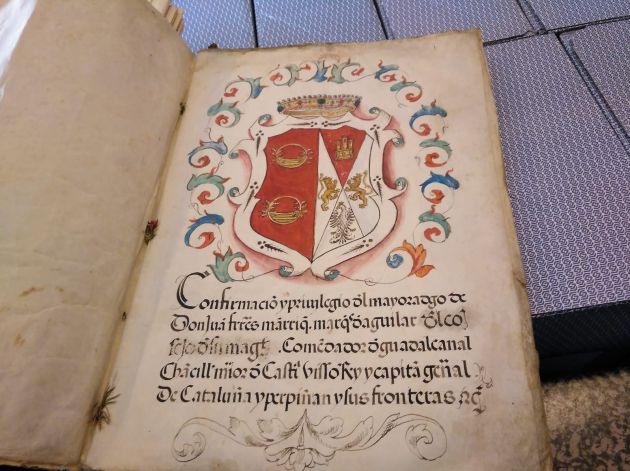 Confirmacio y previlegio ðl mayoradgo de
Don Juā frr̄es mārriq̄. marq̄s ðaguilar ðl cō
sejo ð su magt̄. Comēdador ð guadalcanal
Chācill' m̄ior ð Castī visso Rey y capitā gen̄al
De Cataluña y perpiñan y sus fronteras